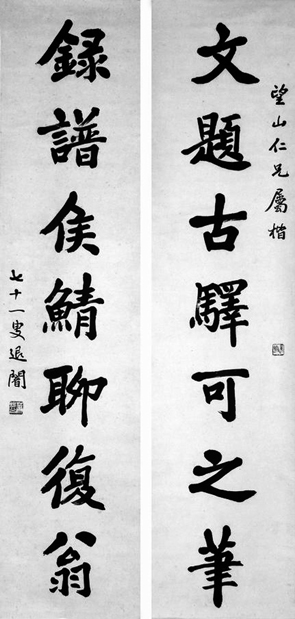 望山仁兄屬楷
文題古驛可之筆
錄譜侯鯖聊復翁
七十一叟退闇